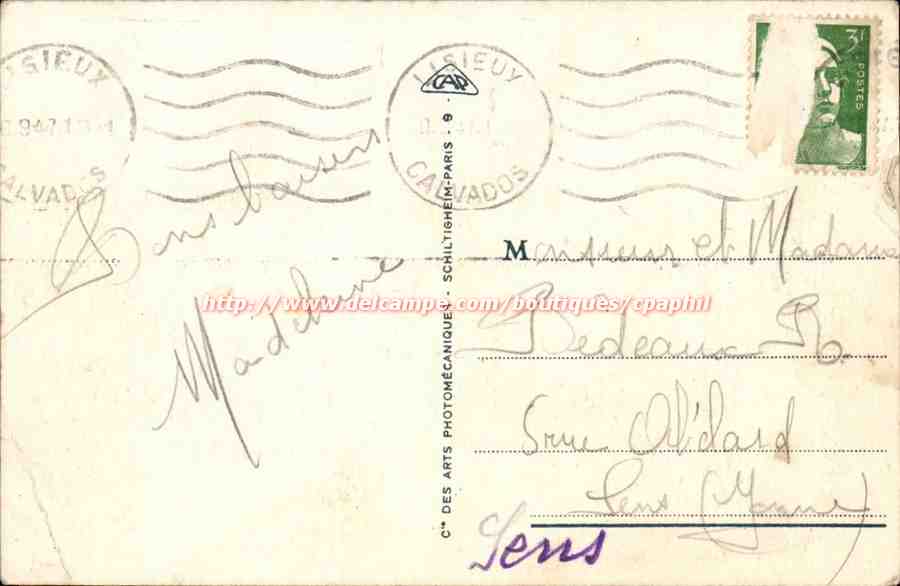 LISIEUX
9-47
CALVADOS
LISIEUX
CALVADOS
CAP
3F
POSTES
Bons baisers
Madeleine
Cie DES ARTS PHOTOMÉCANIQUES - SCHILTIGHEIM-PARIS - 9
http://www.delcampe.com/boutiques/cpaphil
Monsieur et Madame
Bedeaux R.
5 rue Abélard
Sens (Yonne)
Sens